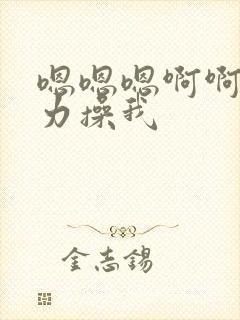 嗯嗯嗯啊啊
力操我
金志锡